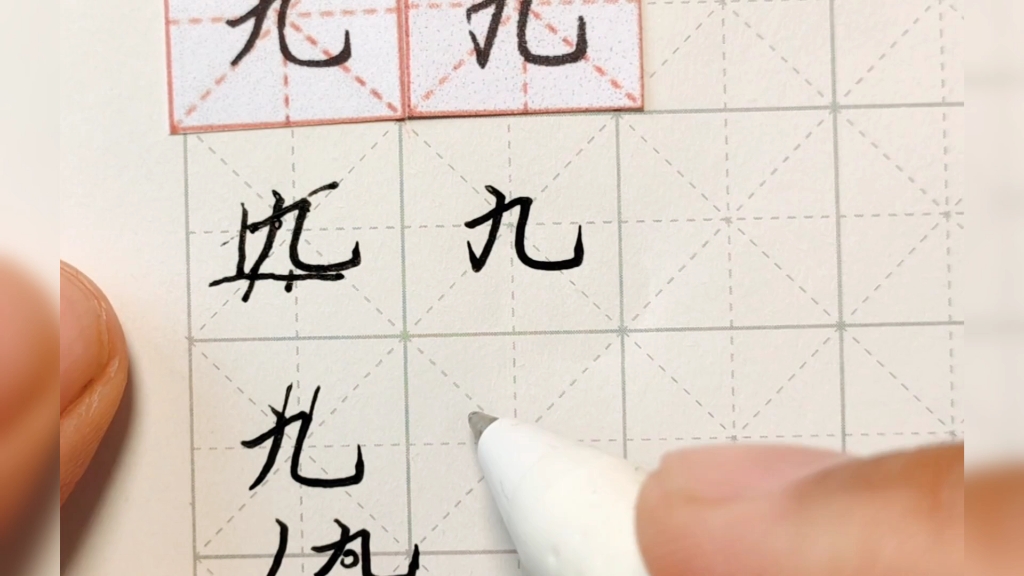 九 九
九 九
九
九